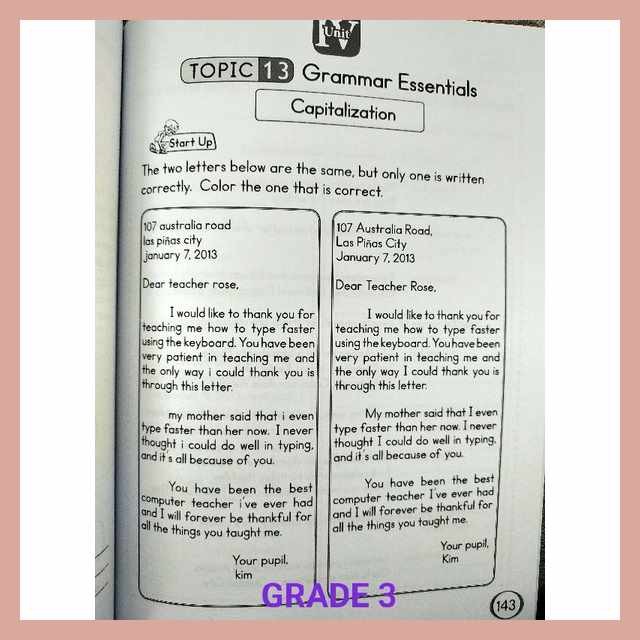 IV
Unit
TOPIC 13 Grammar Essentials
Capitalization
Start Up
The two letters below are the same, but only one is written
correctly. Color the one that is correct.
107 australia road
las piñas city
january 7, 2013
Dear teacher rose,
I would like to thank you for
teaching me how to type faster
using the keyboard. You have been
very patient in teaching me and
the only way i could thank you is
through this letter.
my mother said that i even
type faster than her now. I never
thought i could do well in typing,
and it's all because of you.
You have been the best
computer teacher i've ever had
and I will forever be thankful for
all the things you taught me.
Your pupil,
kim
107 Australia Road,
Las Piñas City
January 7, 2013
Dear Teacher Rose,
I would like to thank you for
teaching me how to type faster
using the keyboard. You have been
very patient in teaching me and
the only way I could thank you is
through this letter.
My mother said that I even
type faster than her now. I never
thought I could do well in typing,
and it's all because of you.
You have been the best
computer teacher I've ever had
and I will forever be thankful for
all the things you taught me.
Your pupil,
Kim
GRADE 3
143